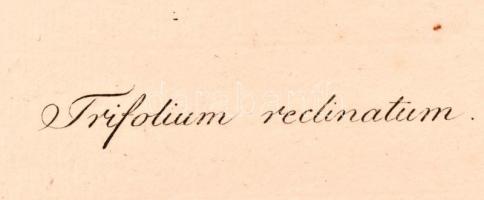 Trifolium reclinatum.